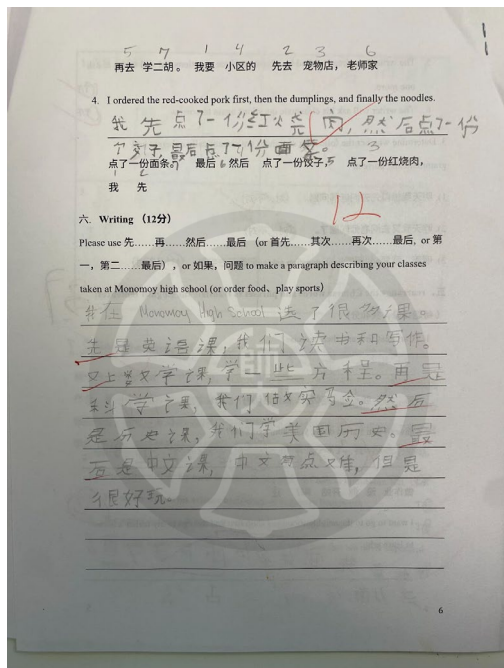 5 7 1 4 2 3 6
再去 学二胡。 我要 小区的 先去 宠物店， 老师家
4. I ordered the red-cooked pork first, then the dumplings, and finally the noodles.
我 先 点了一份红烧 肉，然后点了一份
饺子，最后点了一份面条。
3
点了一份面条。7 最后 6 然后 点了一份饺子,5 点了一份红烧肉,
1 2
我 先
12
六. Writing (12分)
Please use 先……再……然后……最后 (or 首先……其次……再次……最后, or 第
一，第二……最后），or 如果，问题 to make a paragraph describing your classes
taken at Monomoy high school (or order food、play sports)
我在 Monomoy High School 选了很多课。
先是英语课，我们读书和写作。
又上数学课，学一些方程。再是
科学课，我们做实验。然后
是历史课，我们学美国历史。最
后是中文课，中文有点难，但是
很好玩.
6